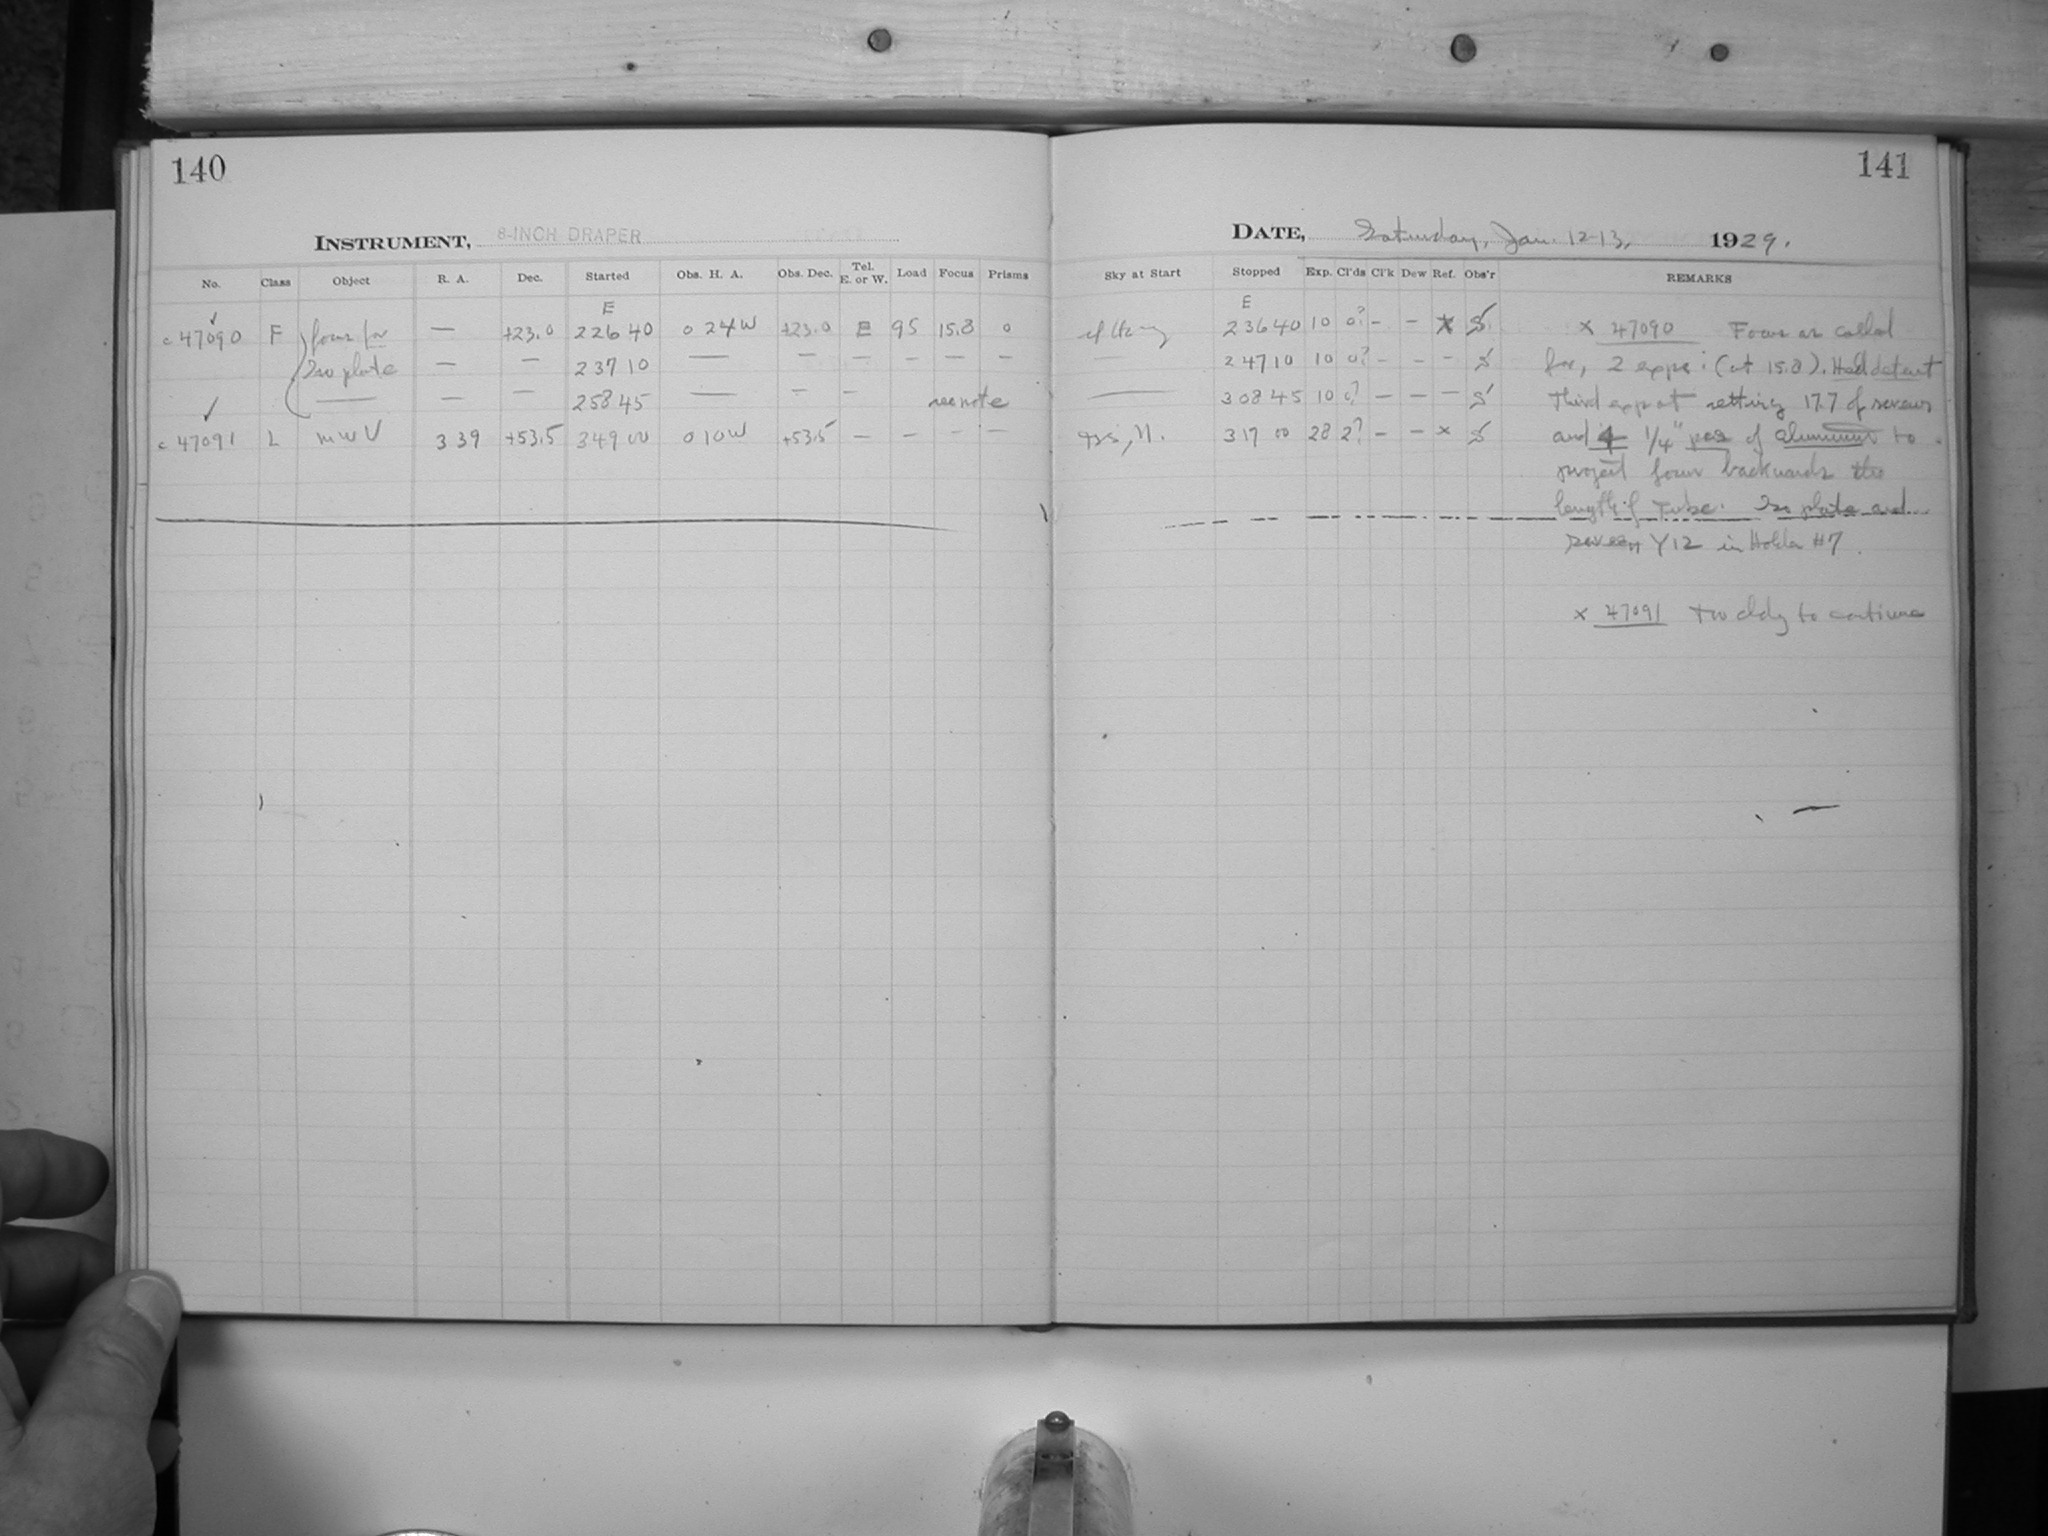 140
141
INSTRUMENT, 8-INCH DRAPER
DATE, Saturday, Jan. 12-13, 1929.
No. Class Object R. A. Dec. Started Obs. H. A. Obs. Dec. Tel. E. or W. Load Focus Prisms
Sky at Start Stopped Exp. Cl'ds Cl'k Dew Ref. Obs'r REMARKS
E
E
c 47090 F focus for — +23.0 2 26 40 0 24 W +23.0 E 95 15.8 0
2 36 40 10 0? - - x S
Iso plate — — 2 37 10 — — — — — —
2 47 10 10 0? - - - S
— — — 2 58 45 — — — see note
— 3 08 45 10 0? - - - S
c 47091 L MWV 3 39 +53.5 3 49 00 0 10 W +53.5 — — — —
3 17 00 28 2? - - x S
x 47090 Focus as called
for, 2 exps: (at 15.8).
Third exp at setting 17.7 of screws
and 4 1/4" pcs of aluminum to
project focus backwards the
length of Tube. Iso plate and
screen Y12 in Holder #7.
x 47091 Too cldy to continue